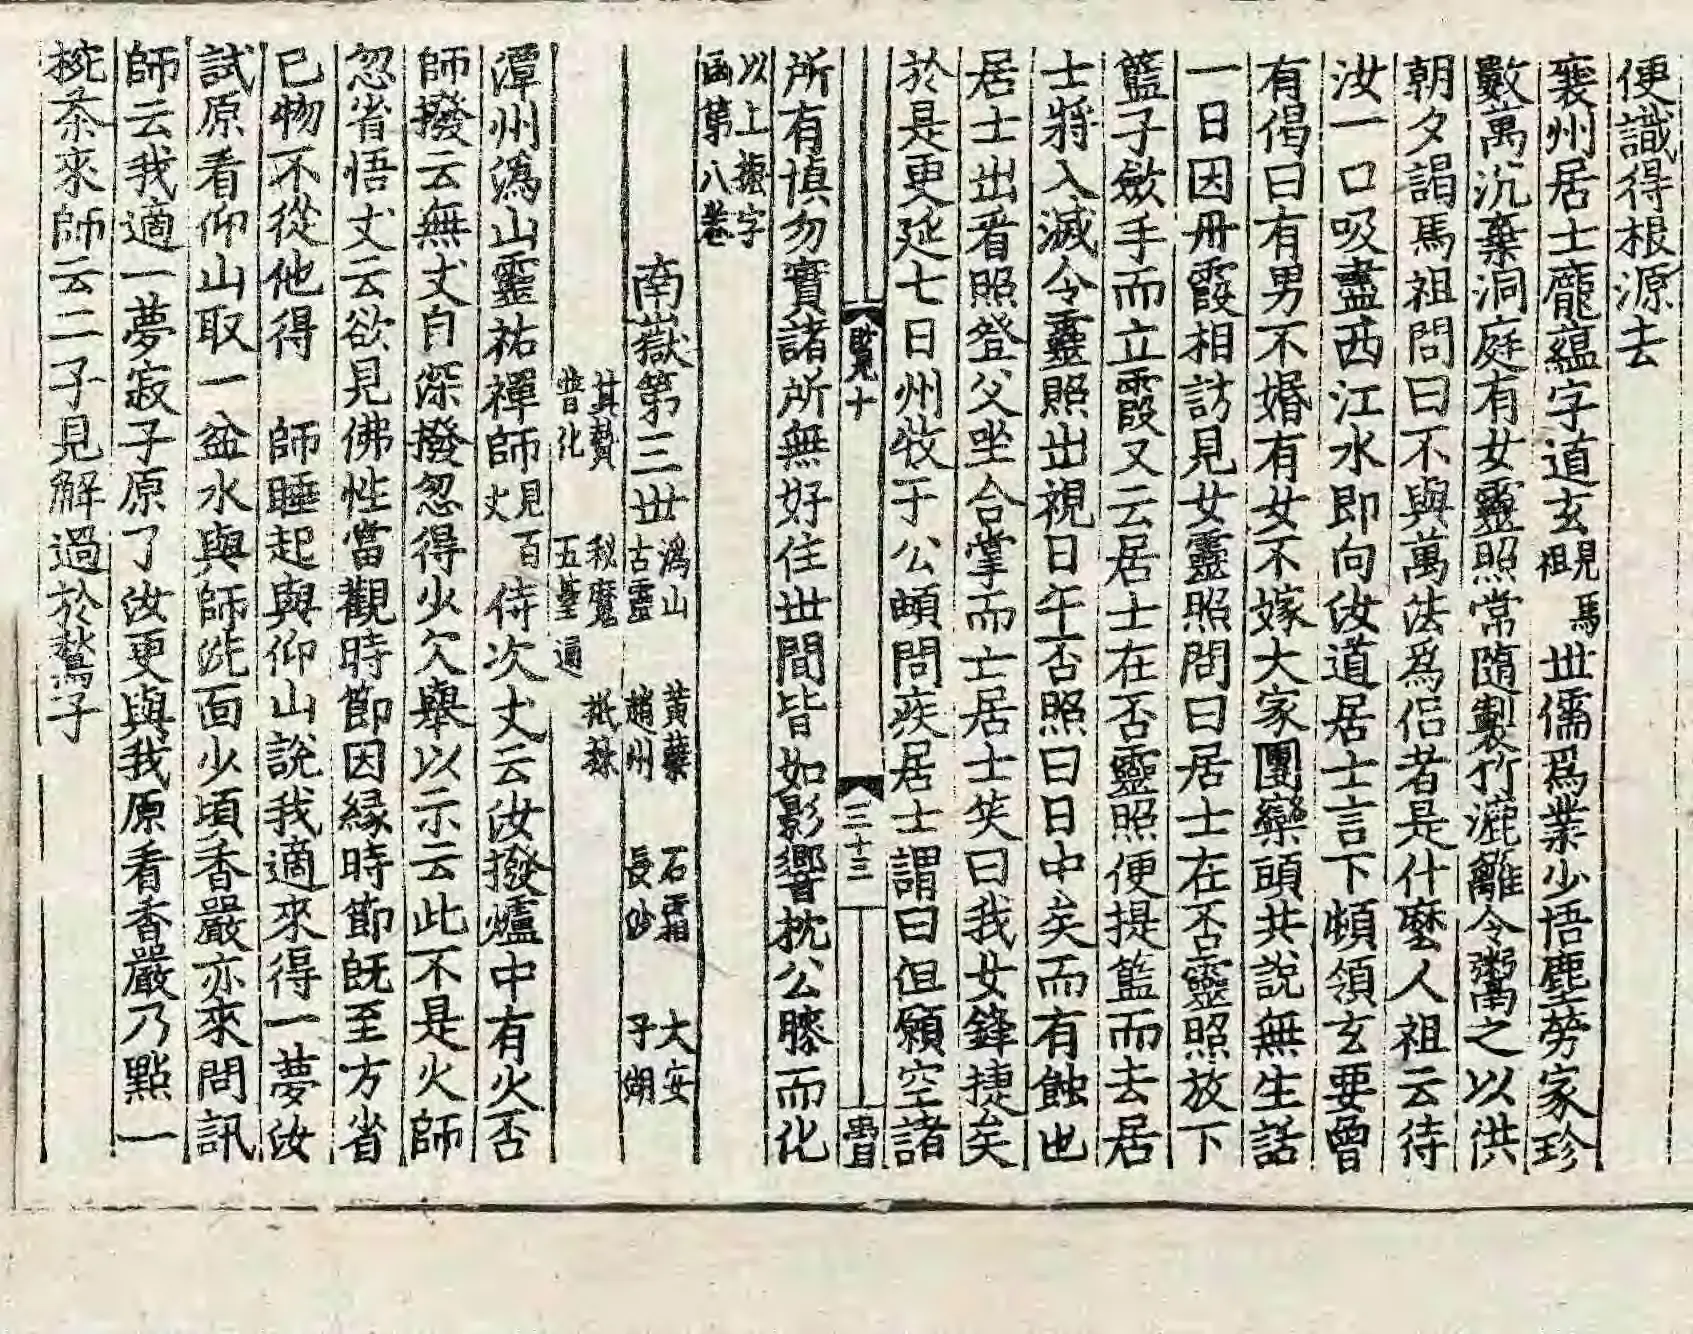 便識得根源去
襄州居士龐蘊字道玄見馬祖世儒爲業少悟塵勞家珍
數萬沉棄洞庭有女靈照常隨製竹漉籬令鬻之以供
朝夕謁馬祖問曰不與萬法爲侶者是什麼人祖云待
汝一口吸盡西江水即向汝道居士言下頓領玄要曾
有偈曰有男不婚有女不嫁大家團欒頭共說無生話
一日因丹霞相訪見女靈照問曰居士在否靈照放下
籃子斂手而立霞又云居士在否靈照便提籃而去居
士將入滅令靈照出視日午否照曰日中矣而有蝕也
居士出看照登父坐合掌而亡居士笑曰我女鋒捷矣
於是更延七日州牧于公頔問疾居士謂曰但願空諸
覽十 三十三
所有慎勿實諸所無好住世間皆如影響枕公膝而化
以上振字
函第八卷
南嶽第三世
溈山 黃蘗 石霜 大安
古靈 趙州 長沙 子湖
其贊 秘魔 祇林
普化 五臺通
潭州溈山靈祐禪師見百丈侍次丈云汝撥爐中有火否
師撥云無丈自深撥忽得少火舉以示云此不是火師
忽省悟丈云欲見佛性當觀時節因緣時節既至方省
已物不從他得 師睡起與仰山說我適來得一夢汝
試原看仰山取一盆水與師洗面少頃香嚴亦來問訊
師云我適一夢寂子原了汝更與我原看香嚴乃點一
椀茶來師云二子見解過於鶖子